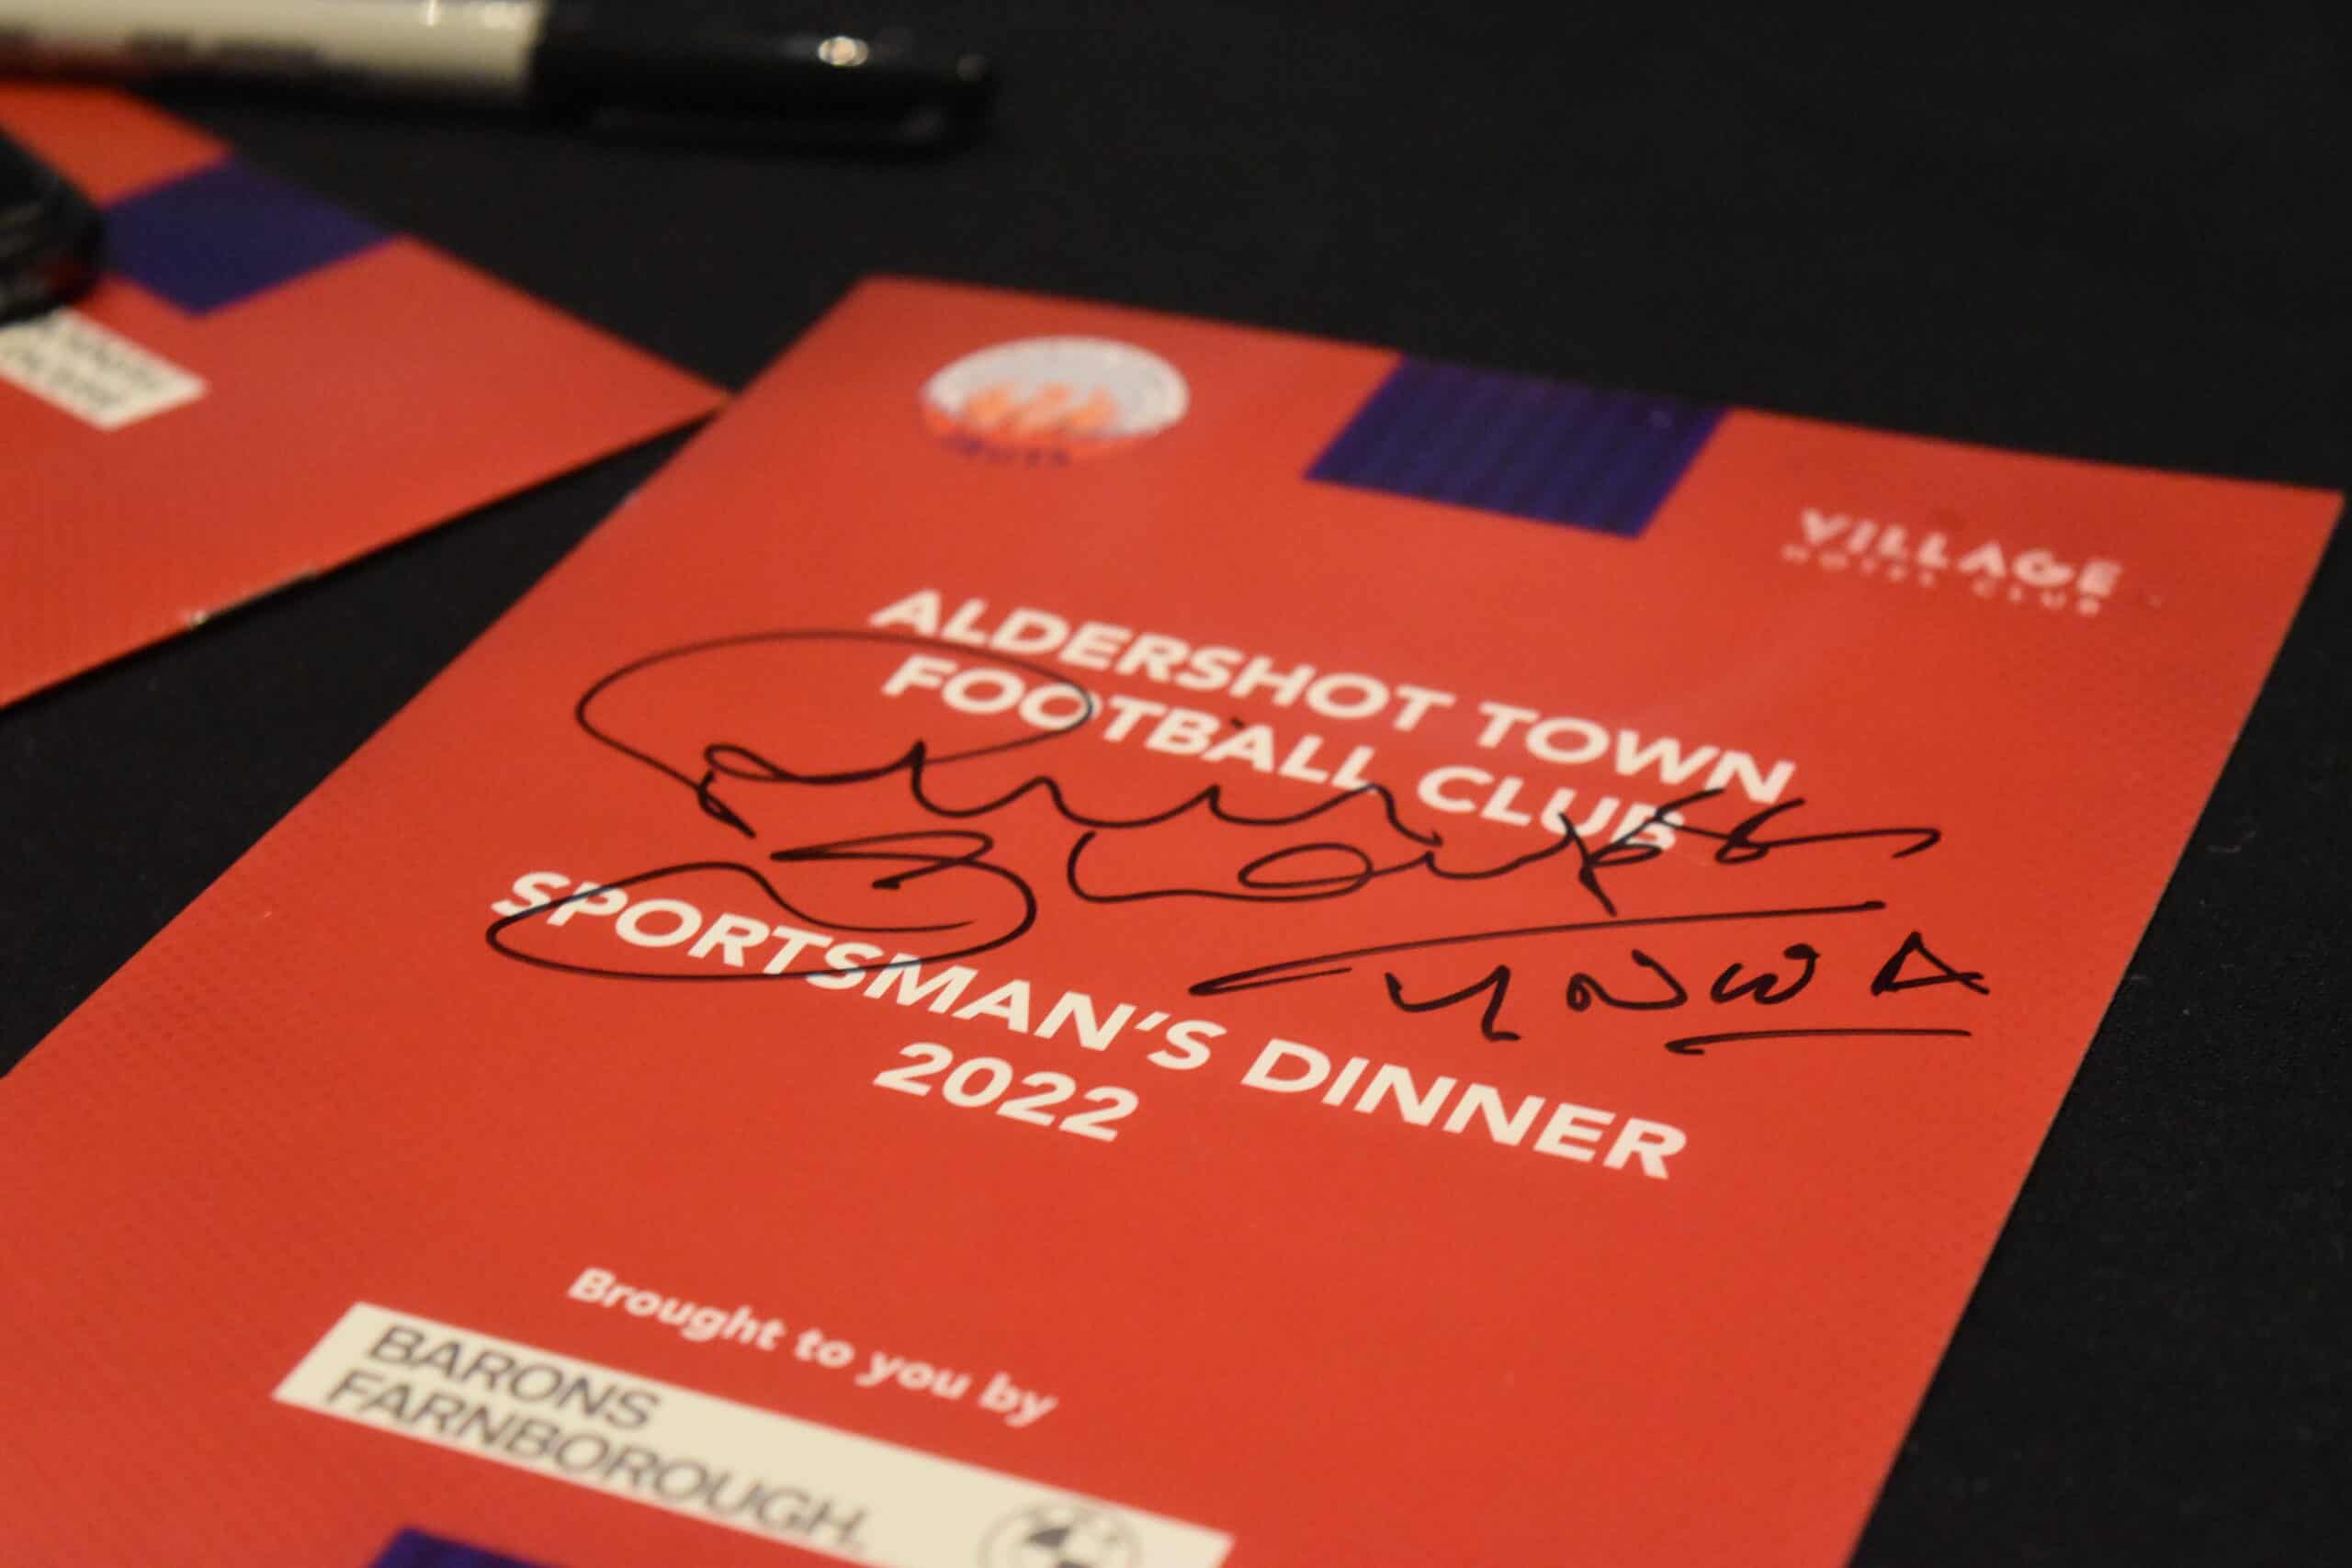 VILLAGE
HOTEL CLUB
ALDERSHOT TOWN
FOOTBALL CLUB
YNWA
SPORTSMAN'S DINNER
2022
Brought to you by
BARONS
FARNBOROUGH.